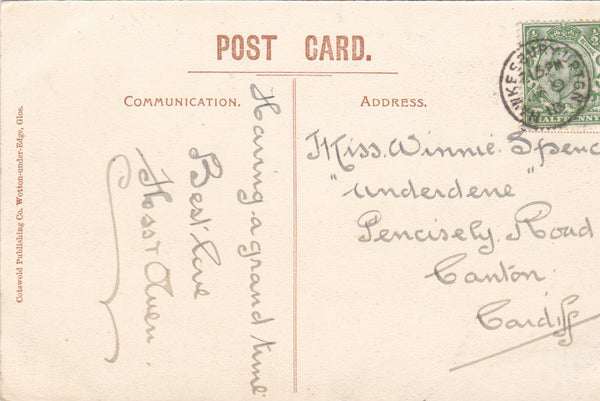 POST CARD.
COMMUNICATION.
ADDRESS.
Having a grand time
Best love
Floss &
Miss. Winnie. Spenc
"Underdene"
Pencisely. Road
Canton.
Cardiff
HALFPENNY
HAWKESBURY UPTON
Cotswold Publishing Co. Wotton-under-Edge, Glos.